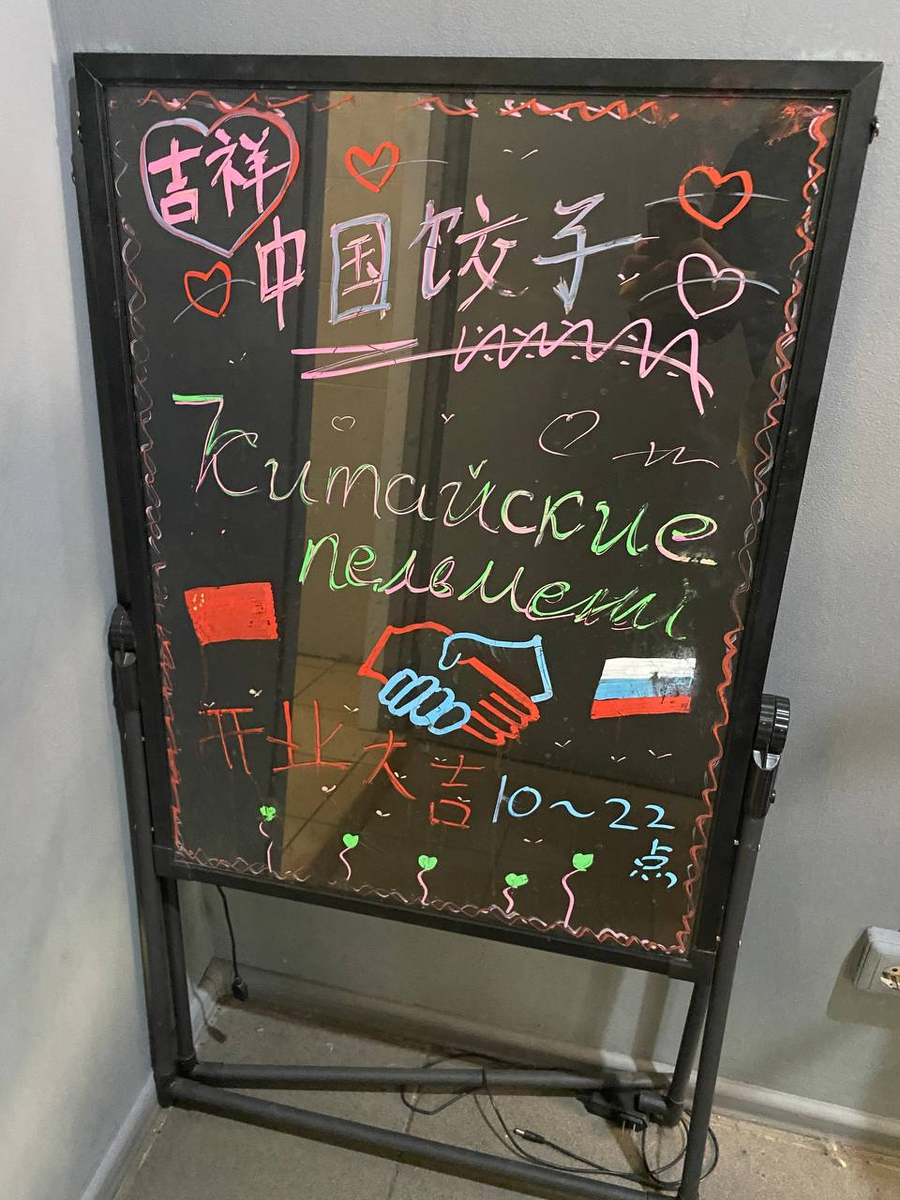 吉祥
中国饺子
Китайские
пельмени
开业大吉 10~22
点